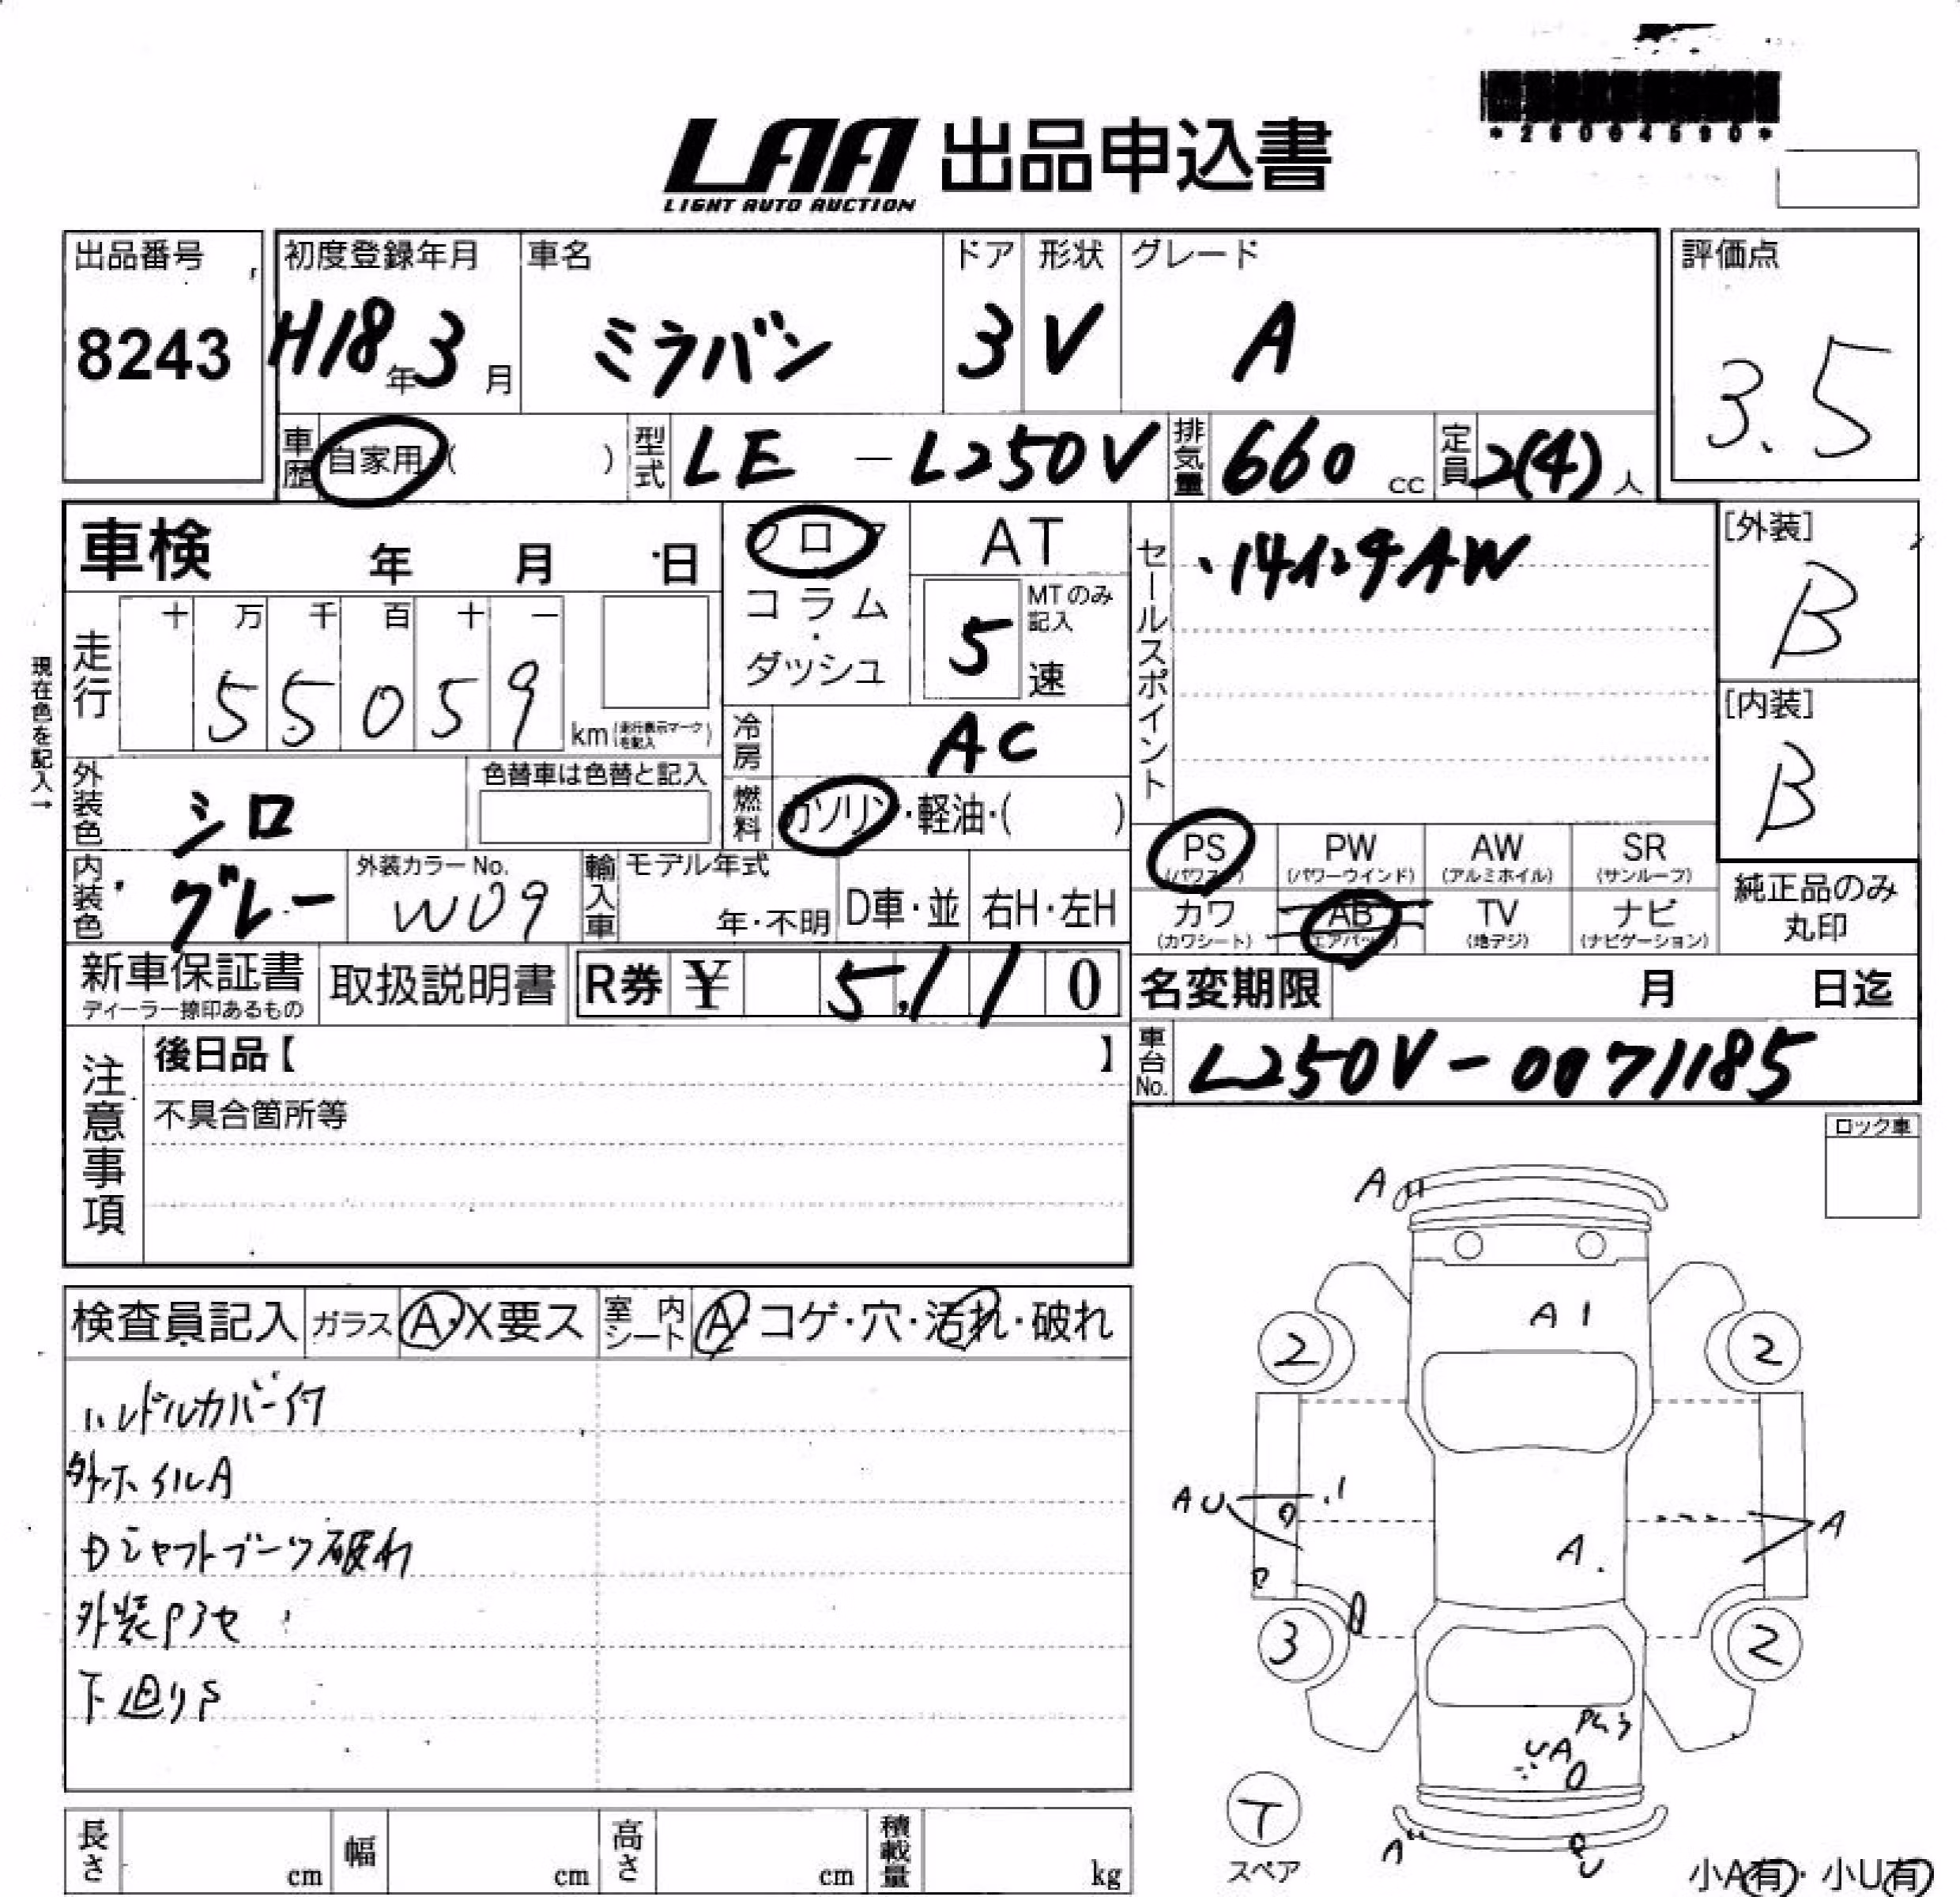 *26004590*
LAA 出品申込書
LIGHT AUTO AUCTION
出品番号 初度登録年月 車名 ドア 形状 グレード 評価点
8243 H18年3月 ミラバン 3 V A 3.5
車歴 自家用( ) 型式 LE-L250V 排気量 660cc 定員 2(4)人
車検 年 月 日 フロア AT セールスポイント [外装]
・14インチAW B
コラム・ダッシュ 5速 MTのみ記入
現在色を記入→
走行 十 万 千 百 十 一
55059 km(走行表示マークを記入) [内装]
冷房 AC B
外装色 シロ 色替車は色替と記入 燃料 ガソリン・軽油・( )
PS PW AW SR
(パワステ) (パワーウインド) (アルミホイル) (サンルーフ)
内装色 グレー 外装カラーNo. W09 輸入車 モデル年式 年・不明 D車・並 右H・左H
カワ AB TV ナビ 純正品のみ
(カワシート) (エアバッグ) (地デジ) (ナビゲーション) 丸印
新車保証書 取扱説明書 R券 ¥ 5,110 名変期限 月 日迄
ディーラー捺印あるもの
注意事項 後日品【 】 車台No. L250V-0071185
不具合箇所等
ロック車
検査員記入 ガラス A・X要ス 室内シート A・コゲ・穴・汚れ・破れ
ハンドルカバー付
外ホイルA
Dシャフトブーツ破れ
下廻りS
A
A1
2 2
AU A
A
3 2
UA
T
スペア
A U
長さ cm 幅 cm 高さ cm 積載量 kg
小A有・小U有